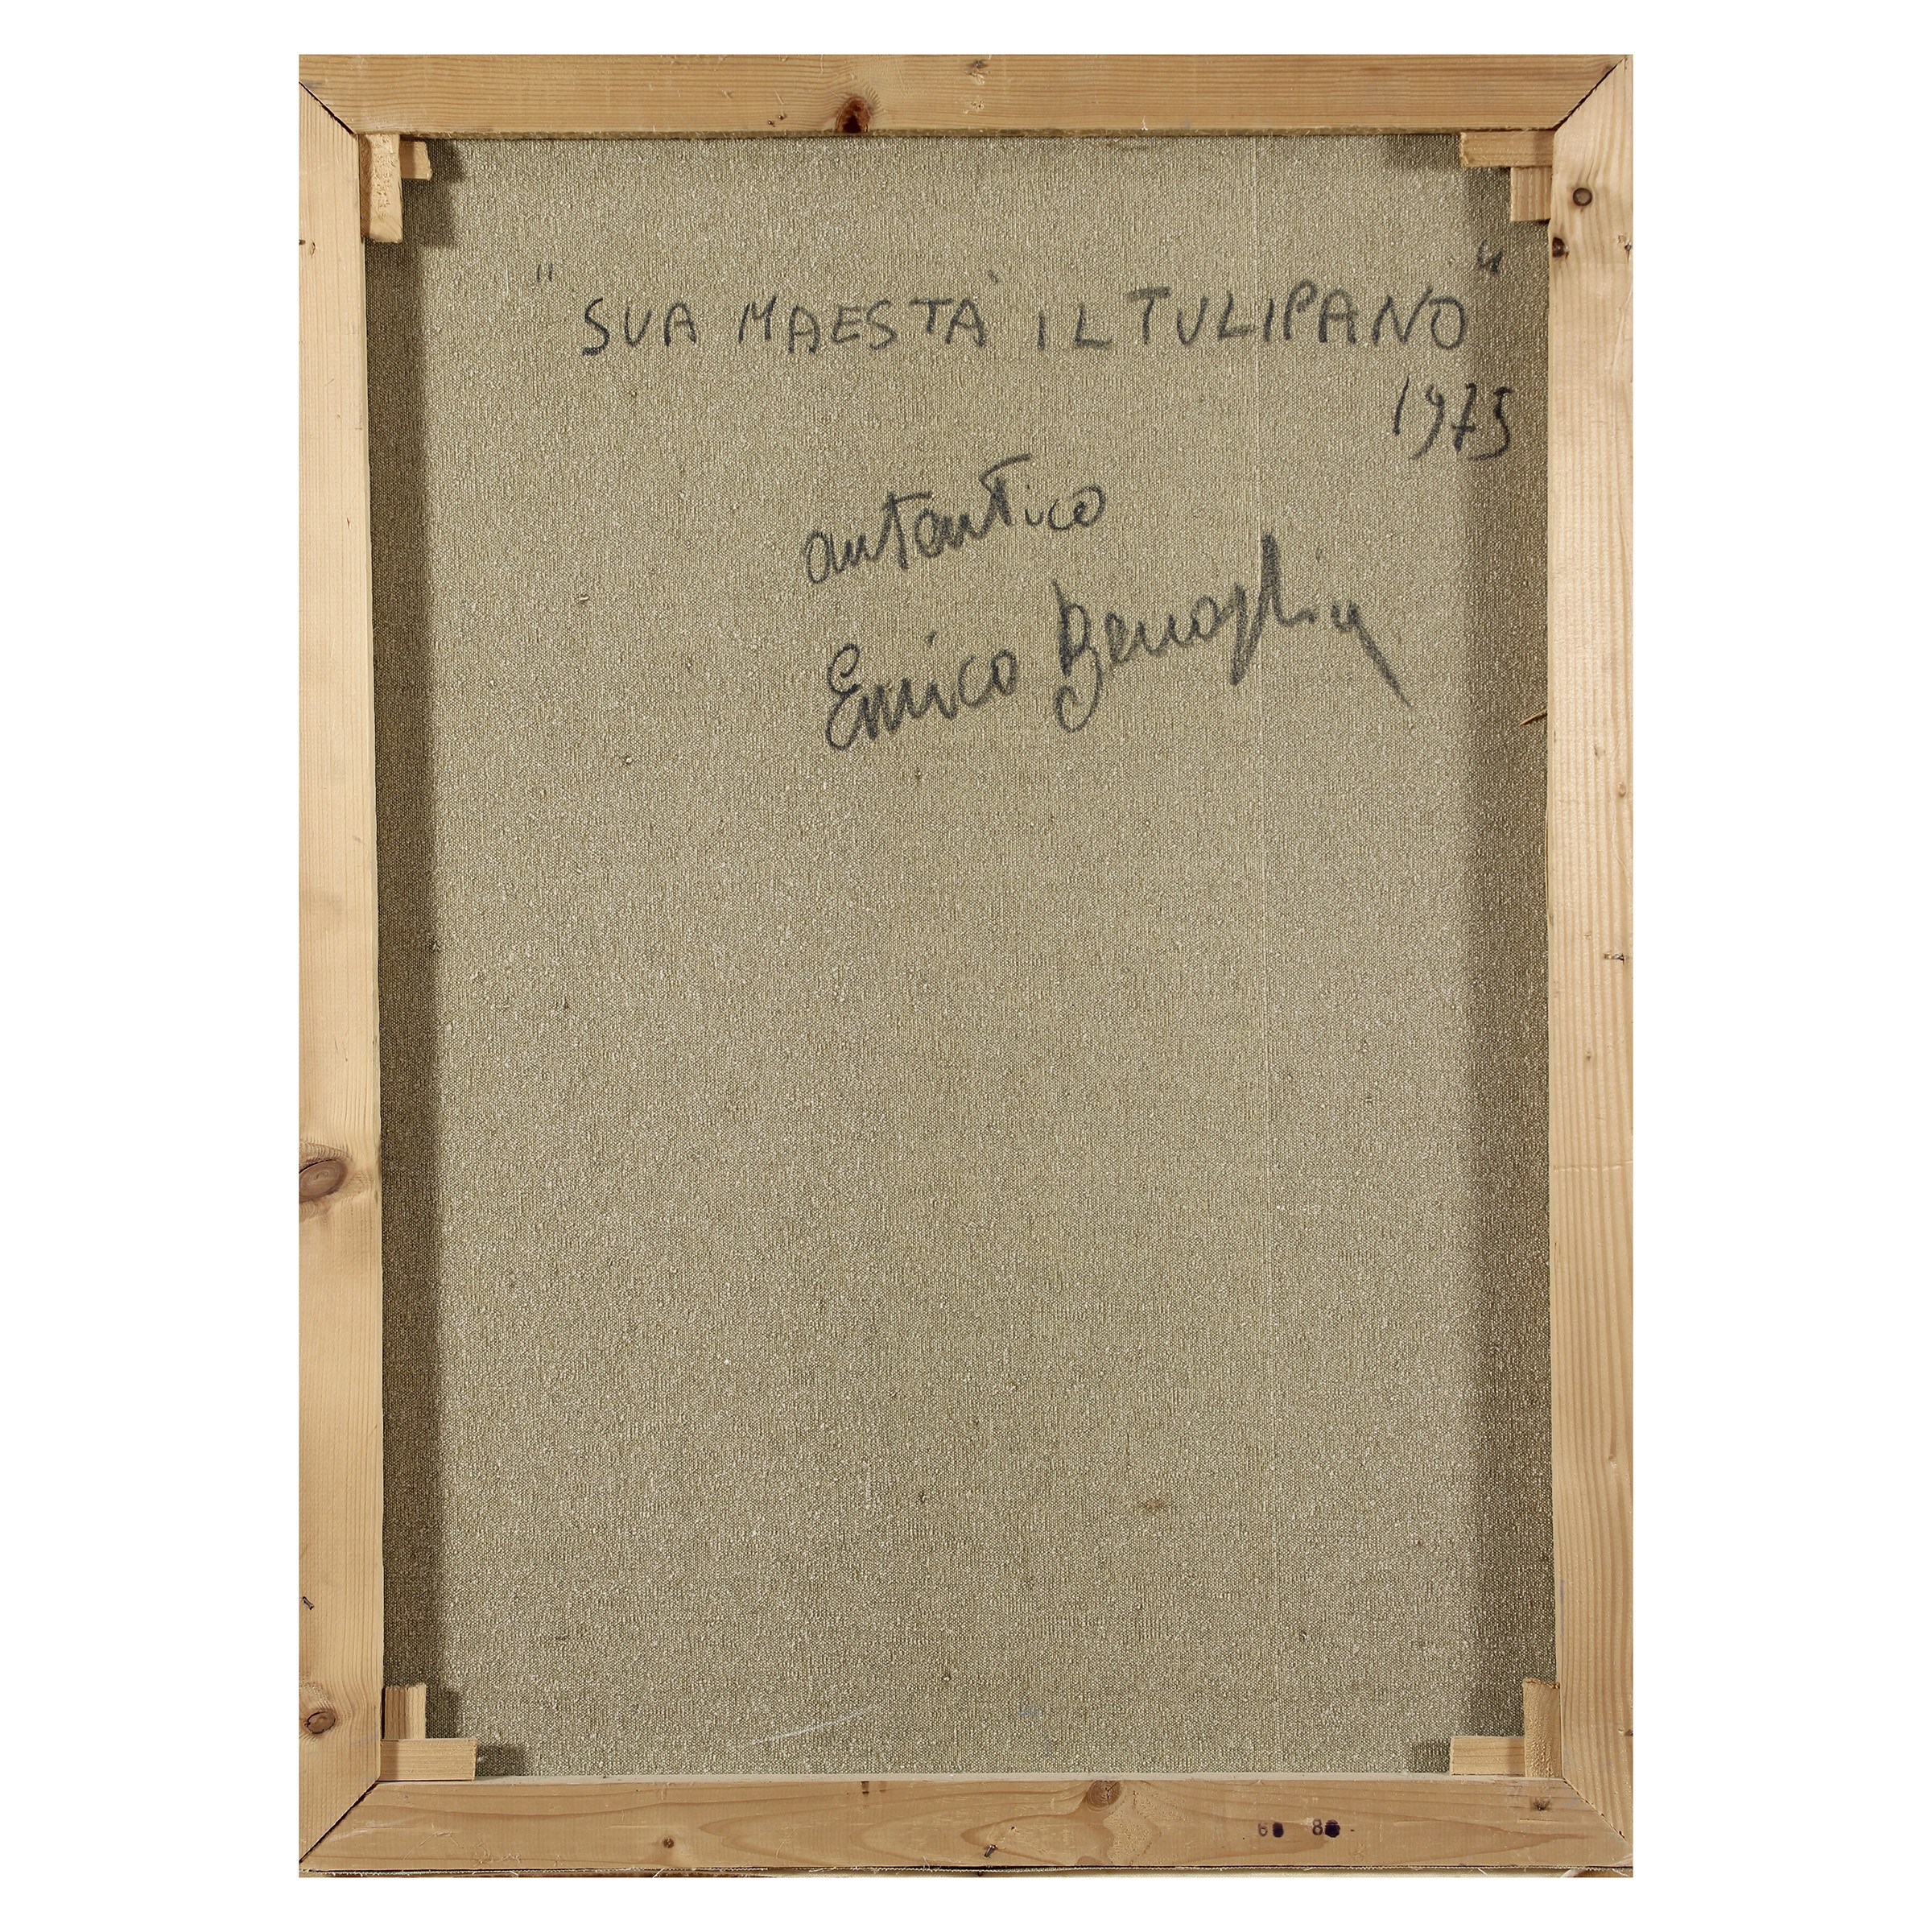 "SUA MAESTA' IL TULIPANO"
1975
autentico
Enrico Benaglia
60 80